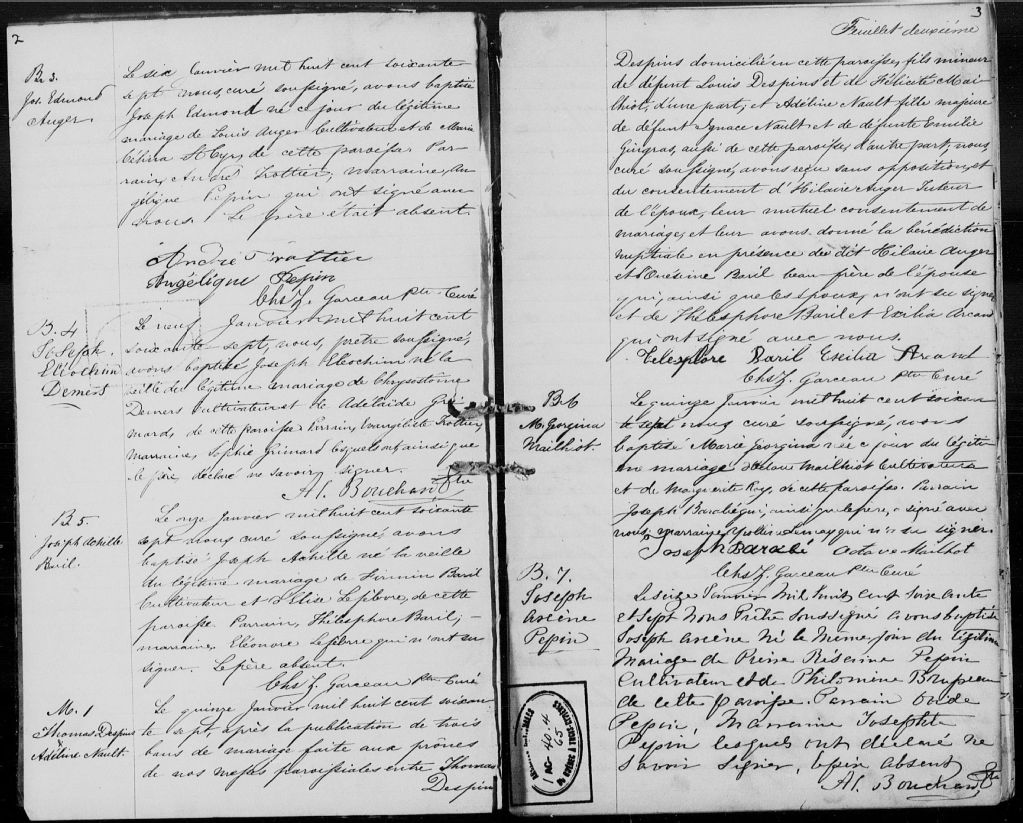 2
B. 3.
Jos. Edmond
Auger.
Le six Janvier mil huit cent soixante
sept nous, curé soussigné, avons baptisé
Joseph Edmond né ce jour du légitime
mariage de Louis Auger Cultivateur et de Marie
St Cyr, de cette paroisse. Par-
rain, André Trottier, marraine, An-
gélique Pepin qui ont signé avec
nous. Le père était absent.
André Trottier
Angélique Pepin
Chs Z. Garceau Ptre Curé
B. 4
Joseph
Eliochim
Demers
Le neuf Janvier mil huit cent
soixante sept, nous, prêtre soussigné,
avons baptisé Joseph Eliochim né la
veille du légitime mariage de Chrysostome
Demers cultivateur et de Adélaïde Gri-
mard, de cette paroisse. Parrain Evangeliste Trottier,
marraine, Sophie Grimard lesquels ont ainsi que
le père, déclaré ne savoir signer.
Al. Bouchard Ptre
B. 5.
Joseph Achille
Baril.
Le onze Janvier mil huit cent soixante
sept nous curé soussigné, avons
baptisé Joseph Achille né la veille
du légitime mariage de Firmin Baril
Cultivateur et d'Elise Lefebvre, de cette
paroisse. Parrain, Thélesphore Baril;
marraine, Eléonore Lefebvre qui n'ont su
signer. Le père absent.
Chs Z. Garceau Ptre Curé
M. 1
Thomas Despins
&
Adéline Nault.
Le quinze Janvier mil huit cent soixan-
te sept, après la publication de trois
bans de mariage faite aux prônes
de nos messes paroissiales entre Thomas
Despins
3
Feuillet deuxième
Despins domicilié en cette paroisse, fils mineur
de défunt Louis Despins et de Félicité Mai-
lhiot, d'une part; et Adéline Nault fille majeure
de défunt Ignace Nault et de défunte Emilie
Gingras, aussi de cette paroisse, d'autre part, nous,
curé soussigné, avons reçu sans opposition, et
du consentement d'Hilaire Auger Tuteur
de l'époux, leur mutuel consentement de
mariage, et leur avons donné la bénédiction
nuptiale en présence du dit Hilaire Auger
et d'Onésime Baril beau-frère de l'épouse
qui, ainsi que les époux, n'ont su signer,
et de Thélesphore Baril et Exilia Arcand
qui ont signé avec nous.
Telesphore Baril Exilia Arcand
Chs Z. Garceau Ptre Curé
B. 6
M. Georgina
Mailhiot.
Le quinze Janvier mil huit cent soixan-
te sept nous curé soussigné, avons
baptisé Marie Georgina née ce jour du légiti-
me mariage d'Octave Mailhiot Cultivateur
et de Marguerite Roy, de cette paroisse. Parrain
Joseph ainsi que le père, a signé avec
nous, marraine Lemay qui n'a su signer.
Joseph Barabé Octave Mailhot
Chs Z. Garceau Ptre Curé
B. 7.
Joseph
arcène
Pepin
Le seize Janvier Mil huit Cent Soixante
et Sept Nous Prêtre Soussigné avons baptisé
Joseph arcène Né le Même jour du légitime
Mariage de Pierre Pepin
Cultivateur et de Philomène Brusseau
de cette paroisse. Parrain
Pepin, Marraine Josephte
Pepin lesquels ont déclaré ne
Savoir Signer, le père absent
Al. Bouchard Ptre